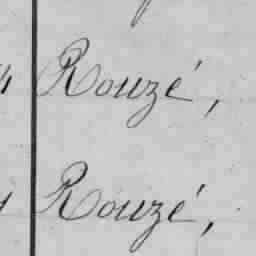 Rouzé,
Rouzé,